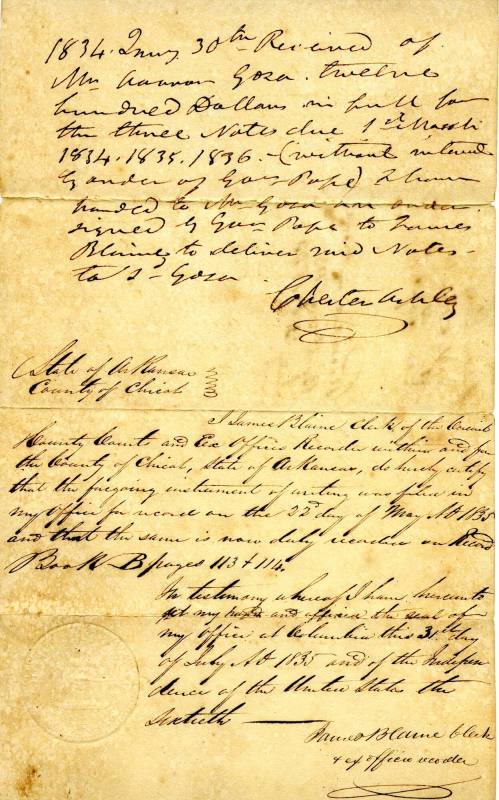 1834. Jany 30th Received of
Mr Aaron Goza twelve
hundred Dollars in full for
the three Notes due 1st March
1834. 1835. 1836. (without interest
by order of Govr Pope) I have
handed to Mr Goza an order
signed by Govr Pope to James
Blaine to deliver said Notes
to sd Goza
Chester Ashley
State of Arkansas
County of Chicot
I James Blaine Clerk of the Circuit
County Court and Ex Officio Recorder within and for
the County of Chicot, state of Arkansas, do hereby certify
that the foregoing instrument of writing was filed in
my Office for record on the day of May AD 1835
and that the same is now duly recorded on Record
Book B pages 113 & 114.
In testimony whereof I have hereunto
set my hand and affixed the seal of
my office at Columbia this 31st day
of July AD 1835 and of the Indepen
dence of the United States the
sixtieth
James Blaine Clerk
& ex officio recorder